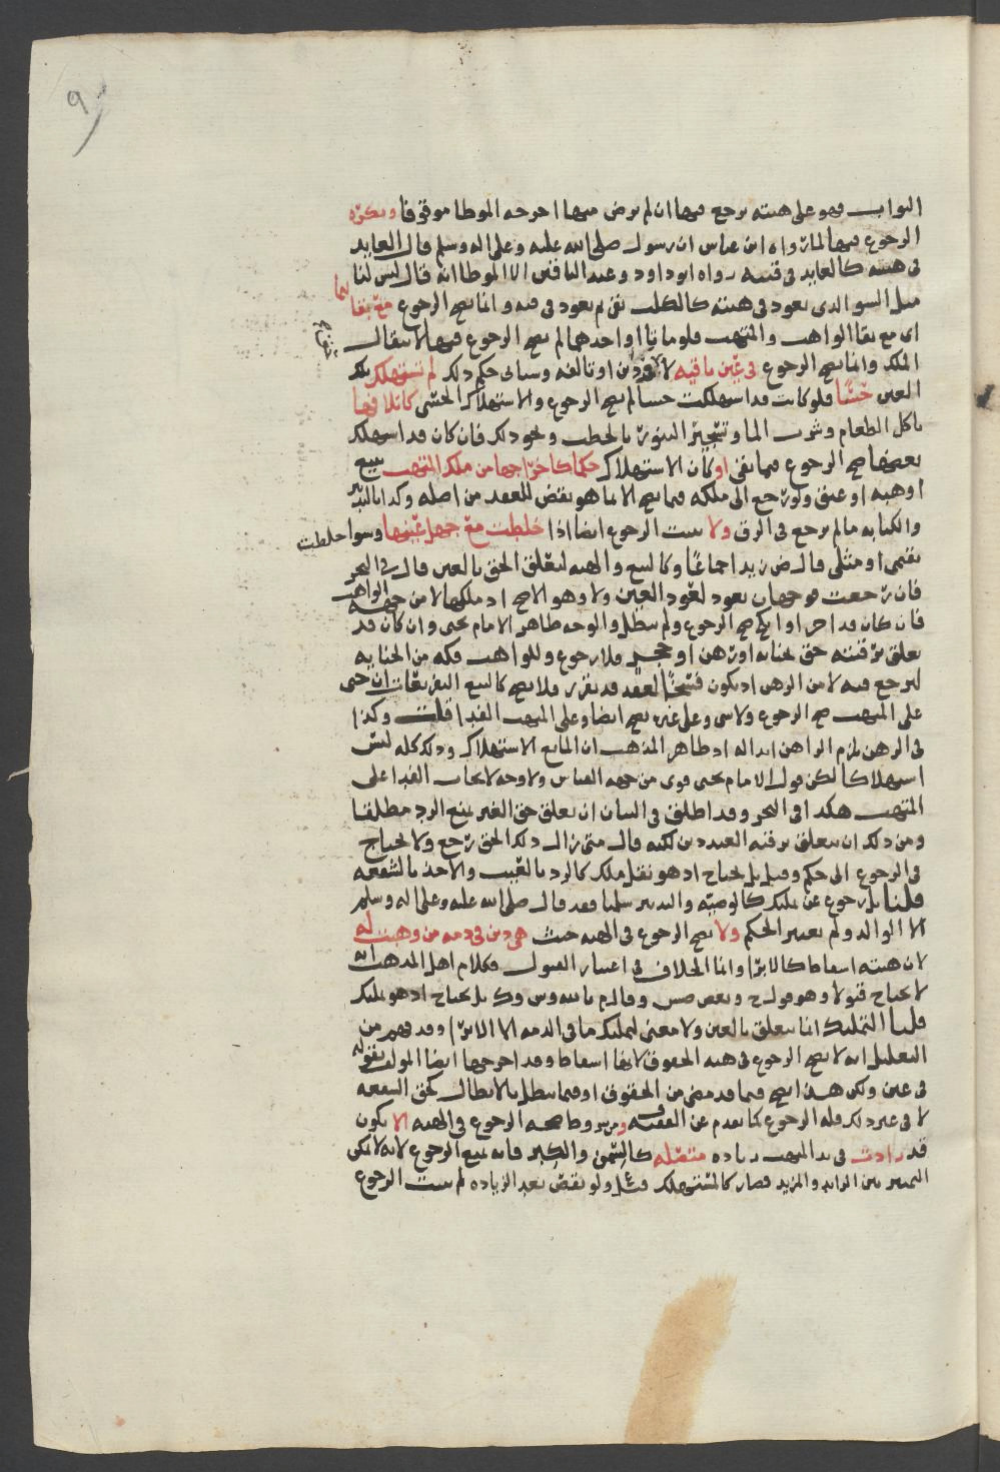 ٩
الثواب فهو على هبته يرجع فيها ان لم يرض منها اخرجه الموطا موقوفا ويكره
الرجوع فيها لما رواه ابن عباس ان رسول صلى الله عليه وعلى اله وسلم قال العايد
في هبته كالعايد في قيئه رواه ابو داود وعند الباقين الا الموطا انه قال ليس لنا
مثل السو الذي يعود في هبته كالكلب يقي ثم يعود في قيه وانما يصح الرجوع مع بقا
اي مع بقا الواهب والمتهب فلو ماتا او احدهما لم يصح الرجوع فيها لانتقال
الملك وانما يصح الرجوع في عين باقيه لا دين او تالفه وسياتي حكم ذلك لم تستهلك تلك
العين حسا فلو كانت قد استهلكت حسا لم يصح الرجوع والاستهلاك الحسي كاتلافها
باكل الطعام وشرب الما وتسجير التنور بالحطب ونحو ذلك فان كان قد استهلك
بعضها صح الرجوع فيما بقي او كان الاستهلاك حكما كاخراجها من ملك المتهب ببيع
او هبه او عتق ولو رجع الى ملكه فيما يصح الا بما هو نقض للعقد من اصله وكذا بالتدبير
والكتابه ما لم يرجع في الرق ولا يثبت الرجوع ايضا اذا خلطت مع جهل عينها وسوا خلطت
بقيمي او مثلي قال ض زيد اجماعا وكالبيع والهبه لتعلق الحق بالعين قال في البحر
فان رجعت فوجهان يعود لعود العين ولا وهو الاصح اذ ملكها لا من جهه الواهب
فان كان قد اجر او انكح صح الرجوع ولم تبطل والوجه ظاهر الامام يحيى وان كان قد
تعلق برقبته حق بجنايه او رهن او حجر فلا رجوع وللواهب فكه من الجنايه
ليرجع فيه لا من الرهن اذ يكون فسخا لعقد قد تقرر فلا يصح كالبيع التفريعات ان جنى
على المتهب صح الرجوع ولا شي وعلى غيره يصح ايضا وعلى المتهب الفدا قلت وكذا
في الرهن يلزم الراهن ابداله اذ ظاهر المذهب ان المانع الاستهلاك وذلك كله ليس
استهلاكا لكن قول الامام يحيى قوي من جهه القياس ولا وجه لايجاب الفدا على
المتهب هكذا في البحر وقد اطلق في البيان ان تعلق حق الغير يمنع الرد مطلقا
ومن ذلك ان يتعلق برقبه العبد دين لكنه قال متى زال ذلك الحق رجع ولا يحتاج
في الرجوع الى حكم وقيل بل يحتاج اذ هو نقل ملك كالرد بالعيب والاخذ بالشفعه
قلنا بل رجوع عن تمليك كالوصيه والتدبير سلمنا فقد قال صلى الله عليه وعلى اله وسلم
الا الوالد ولم يعتبر الحكم ولا يصح الرجوع في الهبه حيث هي دين في ذمه من وهبت له
لان هبته اسقاط كالابرا وانما الخلاف في اعتبار القبول فكلام اهل المذهب انه
لا يحتاج قبولا وهو قول ح وبعض صش وقال م بالله وس وك بل يحتاج اذ هو تمليك
قلنا التمليك انما يتعلق بالعين ولا معنى لتمليك ما في الذمه الا الابرا وقد فهم من
التعليل انه لا يصح الرجوع في هبه الحقوق لانها اسقاط وقد اخرجها ايضا المولف بقوله
في عين ولكن هذا يصح فيما قد مضى من الحقوق او فيما يبطل بالابطال كحق الشفعه
لا في غير ذلك فله الرجوع كما تقدم عن الفقيه ومن شروط صحه الرجوع في الهبه الا يكون
قد زادت في يد المتهب زياده متصله كالسمن والكبر فانه يمنع الرجوع لانه لا يمكن
التمييز بين الزايد والمزيد فصار كالمستهلك قيل ولو نقص بعد الزياده لم يثبت الرجوع